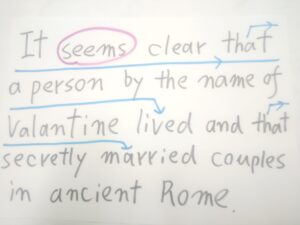 It seems clear that
a person by the name of
Valantine lived and that
secretly married couples
in ancient Rome.